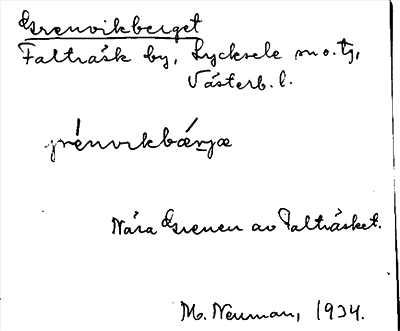 Grenvikberget
Falträsk by, Lycksele sn o. tg,
Västerb. l.
grénvikbærjæ
Nära Grenen av Falträsket.
M. Neuman, 1934.